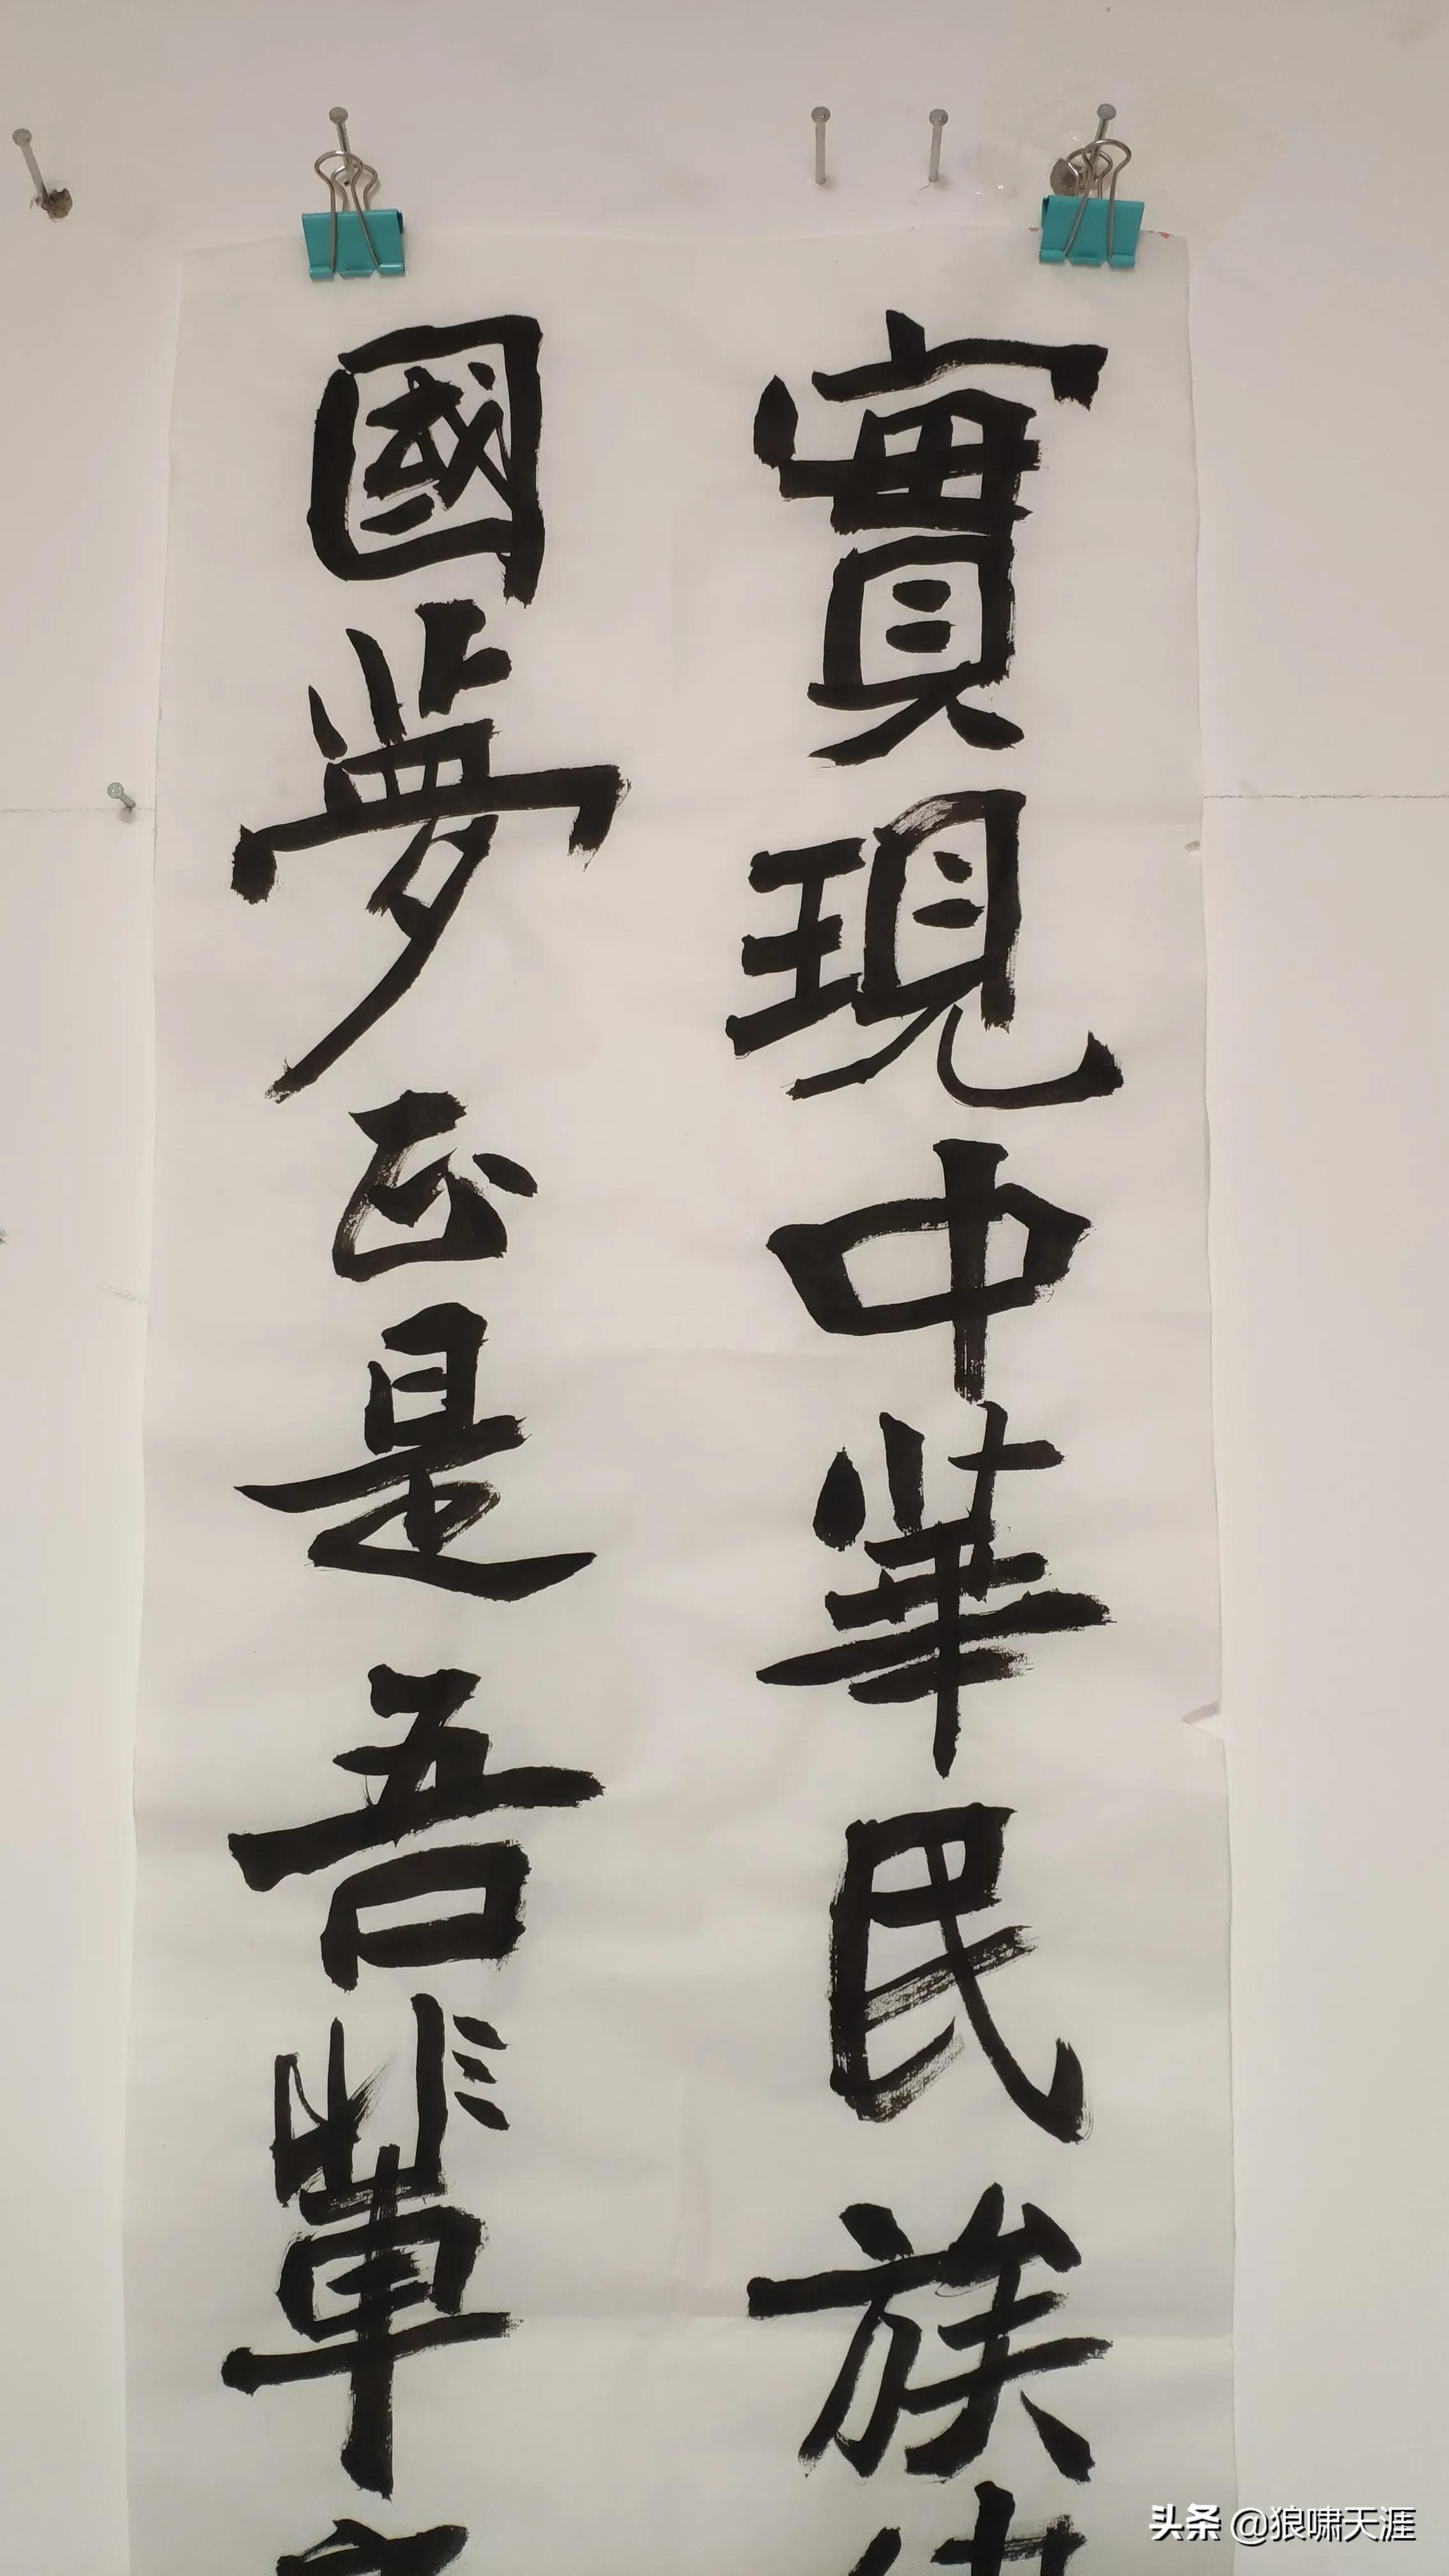 實現中華民族
國夢正是吾輩
头条 @狼啸天涯